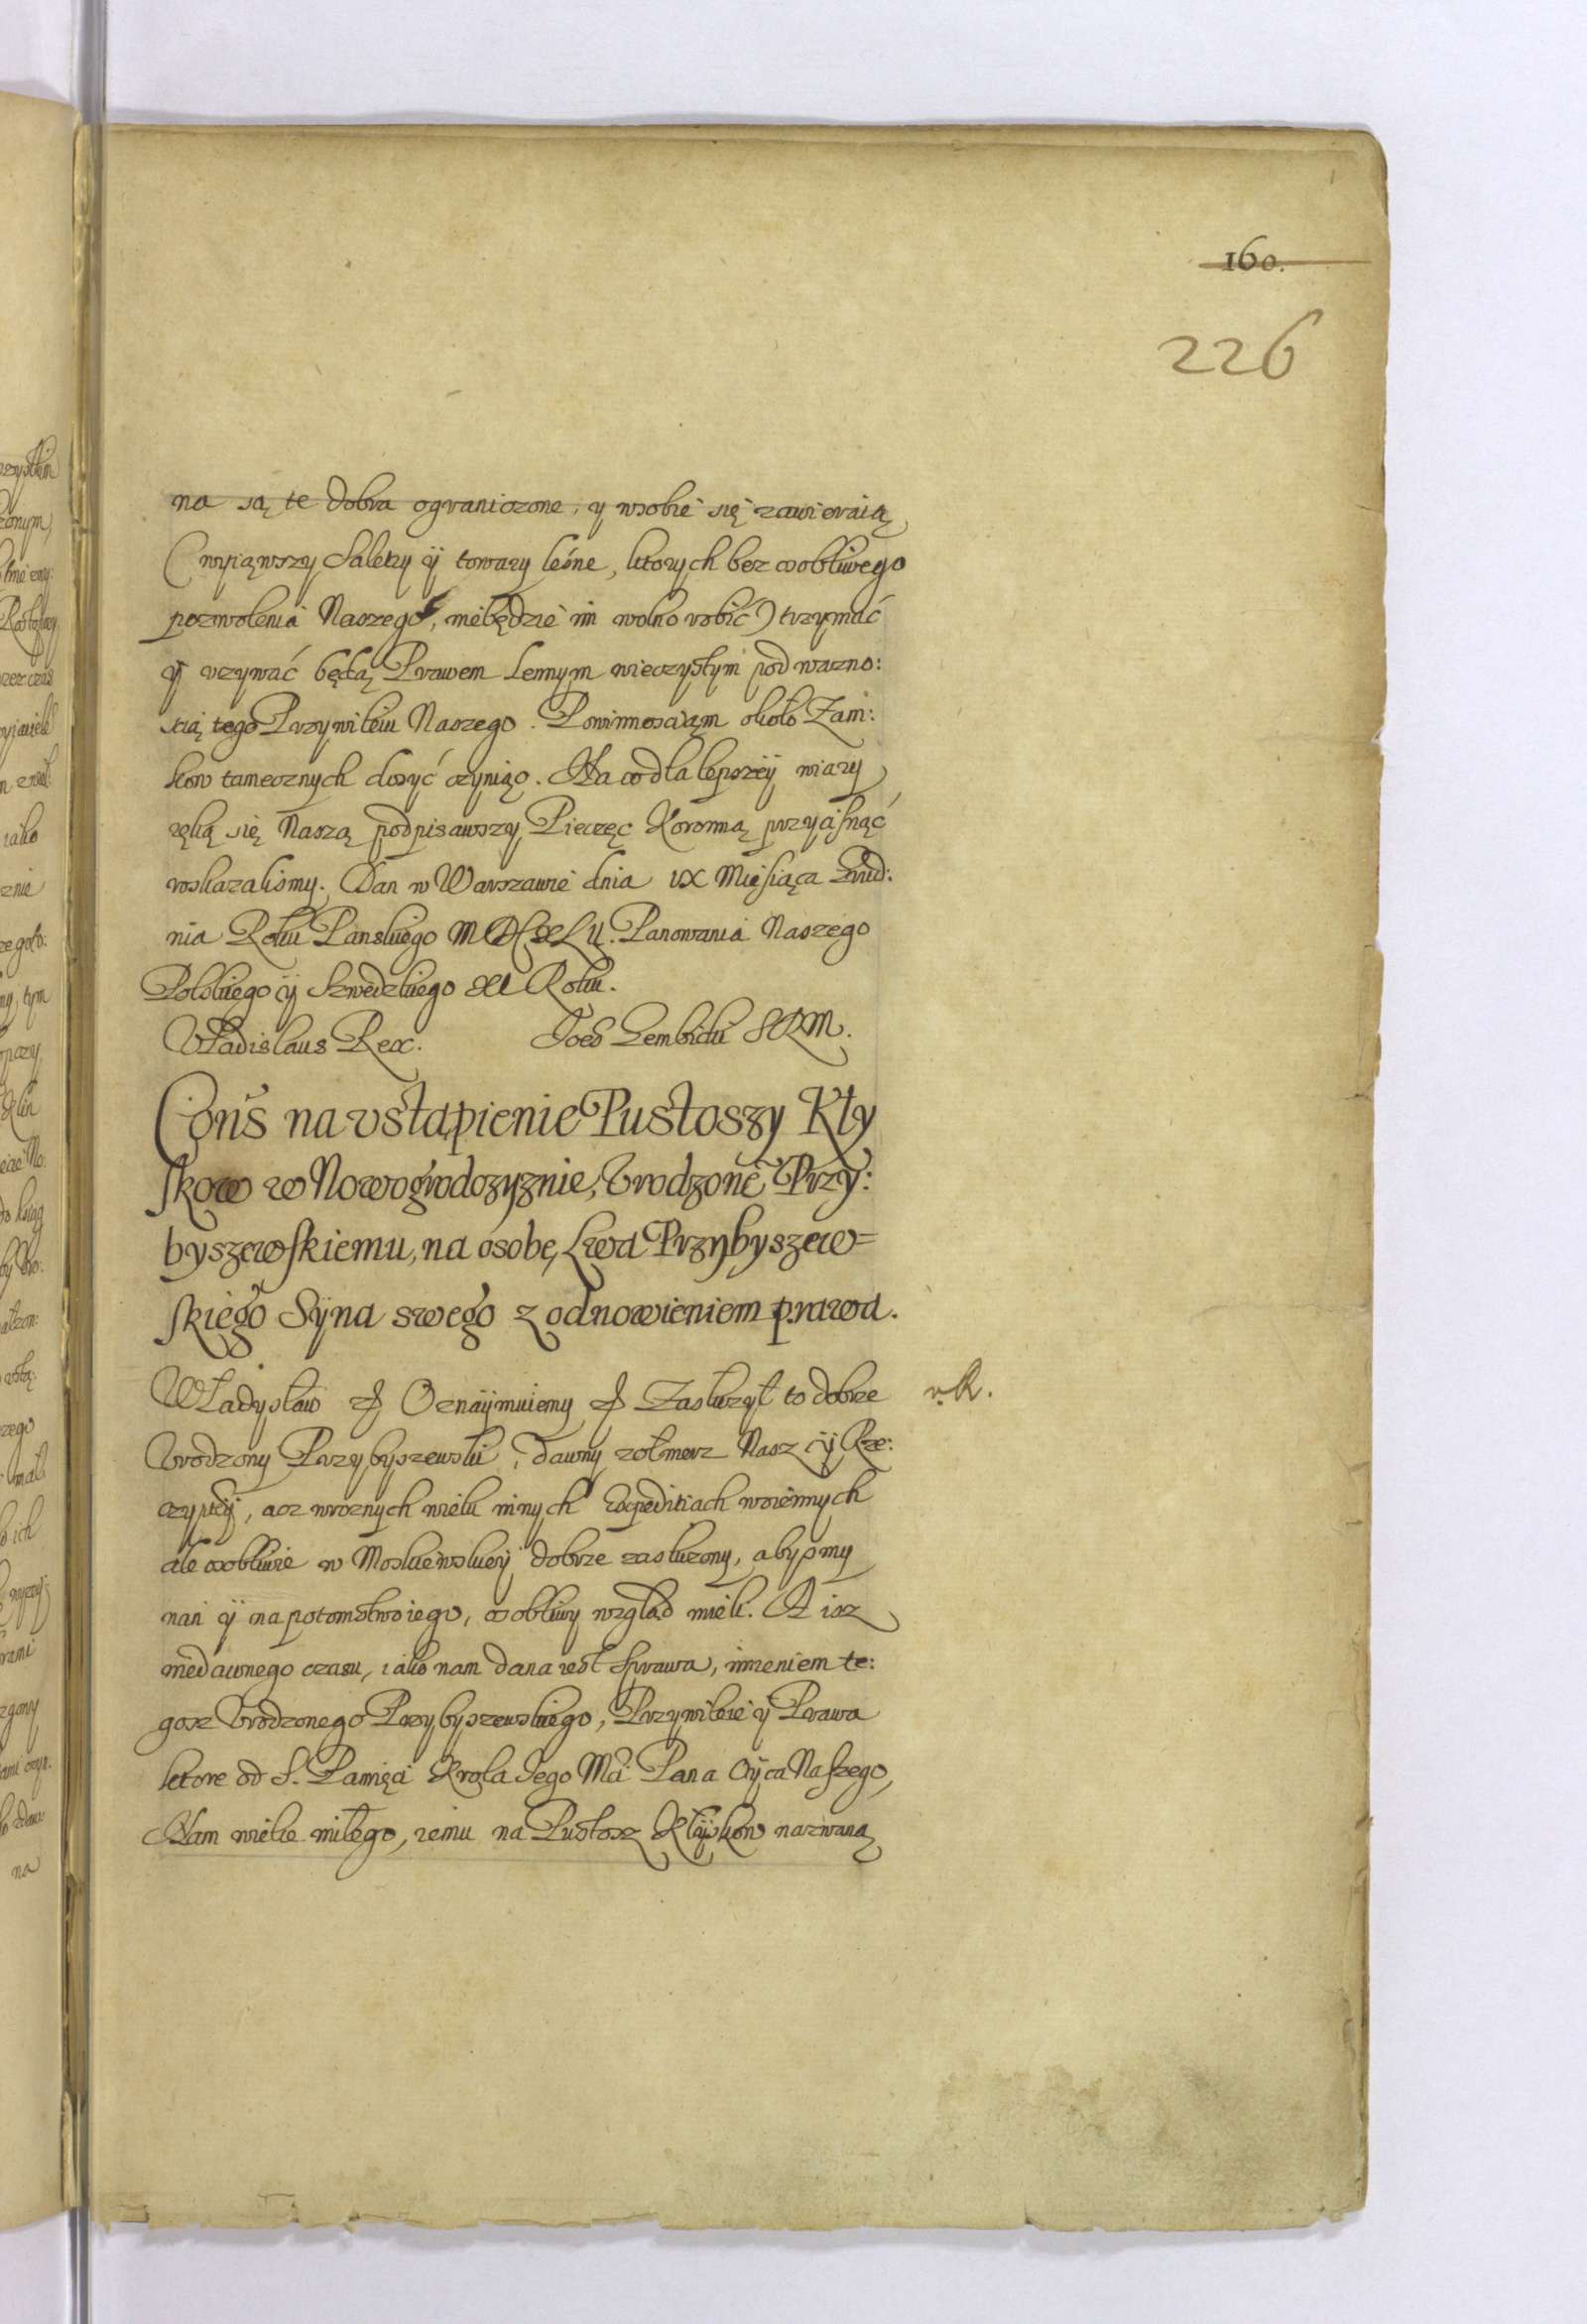 160.
226
na są te dobra ograniczone, y wsobie się zawieraią
(wyiąwszy Saletry ÿ towary leśne, ktorych bez osobliwego
pozwolenia Naszego, niebędzie im wolno robić) trzymać
ÿ vzywać będą Prawem Lennym wieczystym pod wazno:
scią tego Przywileiu Naszego. Powinnosciąm około Zam:
kow tamecznych dosyć czyniąc. Na co dla lepszey wiary
ręką się Naszą podpisawszy, Pieczęc Koronną przycisnąć
roskazalismy. Dan w Warszawie dnia IX Miesiąca Grud:
nia Roku Panskiego MDCXLII. Panowania Naszego
Polskiego ÿ Szwedzkiego XI Roku.
Vładislaus Rex. Joēs Gembicki SRM.
Cons na vstąpienie Pustoszy Kły
skow w Nowogrodczyznie, Vrodzone Przy:
byszewskiemu, na osobę Lwa Przybyszew=
skiego Sÿna swego z odnowieniem prawa.
Władysław Oznaÿmuiemy Zasłuzył to dobrze
Vrodzony Przybyszewski, dawny zołnierz Nasz ÿ Rze:
czyptej, acz wroznych wielu innych Expeditiach woiennych
ale osobliwie w Moskiewskiey dobrze zasłuzony, abysmy
nań ÿ na potomstwo iego, osobliwy wzgląd mieli. A isz
niedawnego czasu, iako nam dana iest sprawa, imieniem te:
gosz Vrodzonego Przybyszewskiego, Przywileie ÿ Prawa
ktore od S. Pamięci Krola Jego Mći Pana Oÿca Naszego,
Nam wielce miłego, iemu na Pustosz Kłÿskow nazwaną